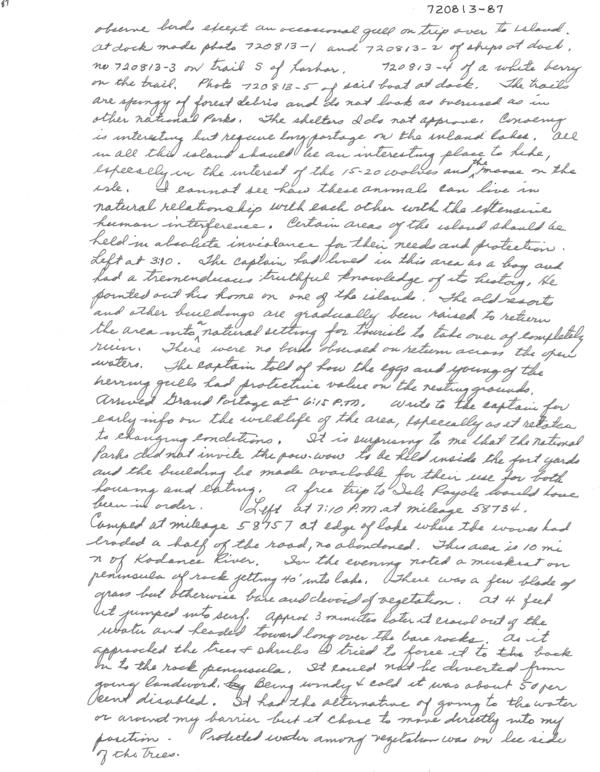 87
720813-87
observe birds except an occasional gull on trip over to island.
At dock made photo 720813-1 and 720813-2 of ships at dock,
no 720813-3 on trail S of harbor. 720813-4 of a white berry
on the trail. Photo 720813-5 of sail boat at dock. The trails
are spongy of forest debris and do not look as overused as in
other national Parks. The shelters I do not approve. Canoeing
is interesting but require long portage on the inland lakes. All
in all this island should be an interesting place to hike,
especially in the interest of the 15-20 wolves and the moose on the
isle. I cannot see how these animals can live in
natural relationship with each other with the extensive
human interference. Certain areas of the island should be
held in absolute inviolance for their needs and protection.
Left at 3:10. The captain had lived in this area as a boy and
had a tremenduous truthful knowledge of its history. He
pointed out his home on one of the islands. The old resorts
and other buildings are gradually been raised to return
the area into a natural setting for tourists to take over of completely
ruin. There were no birds observed on return across the open
waters. The captain told of how the eggs and young of the
herring gulls had protective value on the nesting grounds.
Arrived Grand Portage at 6:15 P.M. Write to the captain for
early info on the wildlife of the area, especially as it relates
to changing conditions. It is surprising to me that the national
Parks did not invite the pow-wow to be held inside the fort yards
and the building be made available for their use for both
housing and eating. A free trip to Isle Royale would have
been in order. Left at 7:10 P.M at mileage 58734.
Camped at mileage 58757 at edge of lake where the waves had
eroded a half of the road, no abandoned. This area is 10 mi
n of Kadance River. In the evening noted a muskrat on
peninsula of rock jetting 40' into lake. There was a few blade of
grass but otherwise bare and devoid of vegetation. At 4 feet
it jumped into surf. Approx 3 minutes later it crawl out of the
water and headed toward long over the bare rocks. As it
approached the trees & shrubs I tried to force it to the back
on to the rock peninsula. It could not be diverted from
going landward. Being windy & cold it was about 50 per
cent disabled. It had the alternative of going to the water
or around my barrier but it chose to move directly into my
position. Protected water among vegetation was on lee side
of the trees.